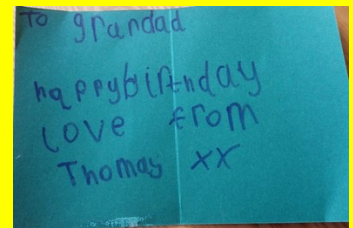 To grandad
happybirthday
Love from
Thomas xx